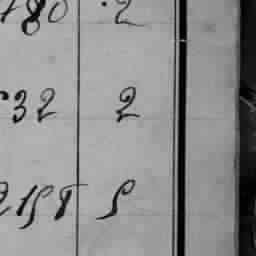 480 2
32 2
2158 5